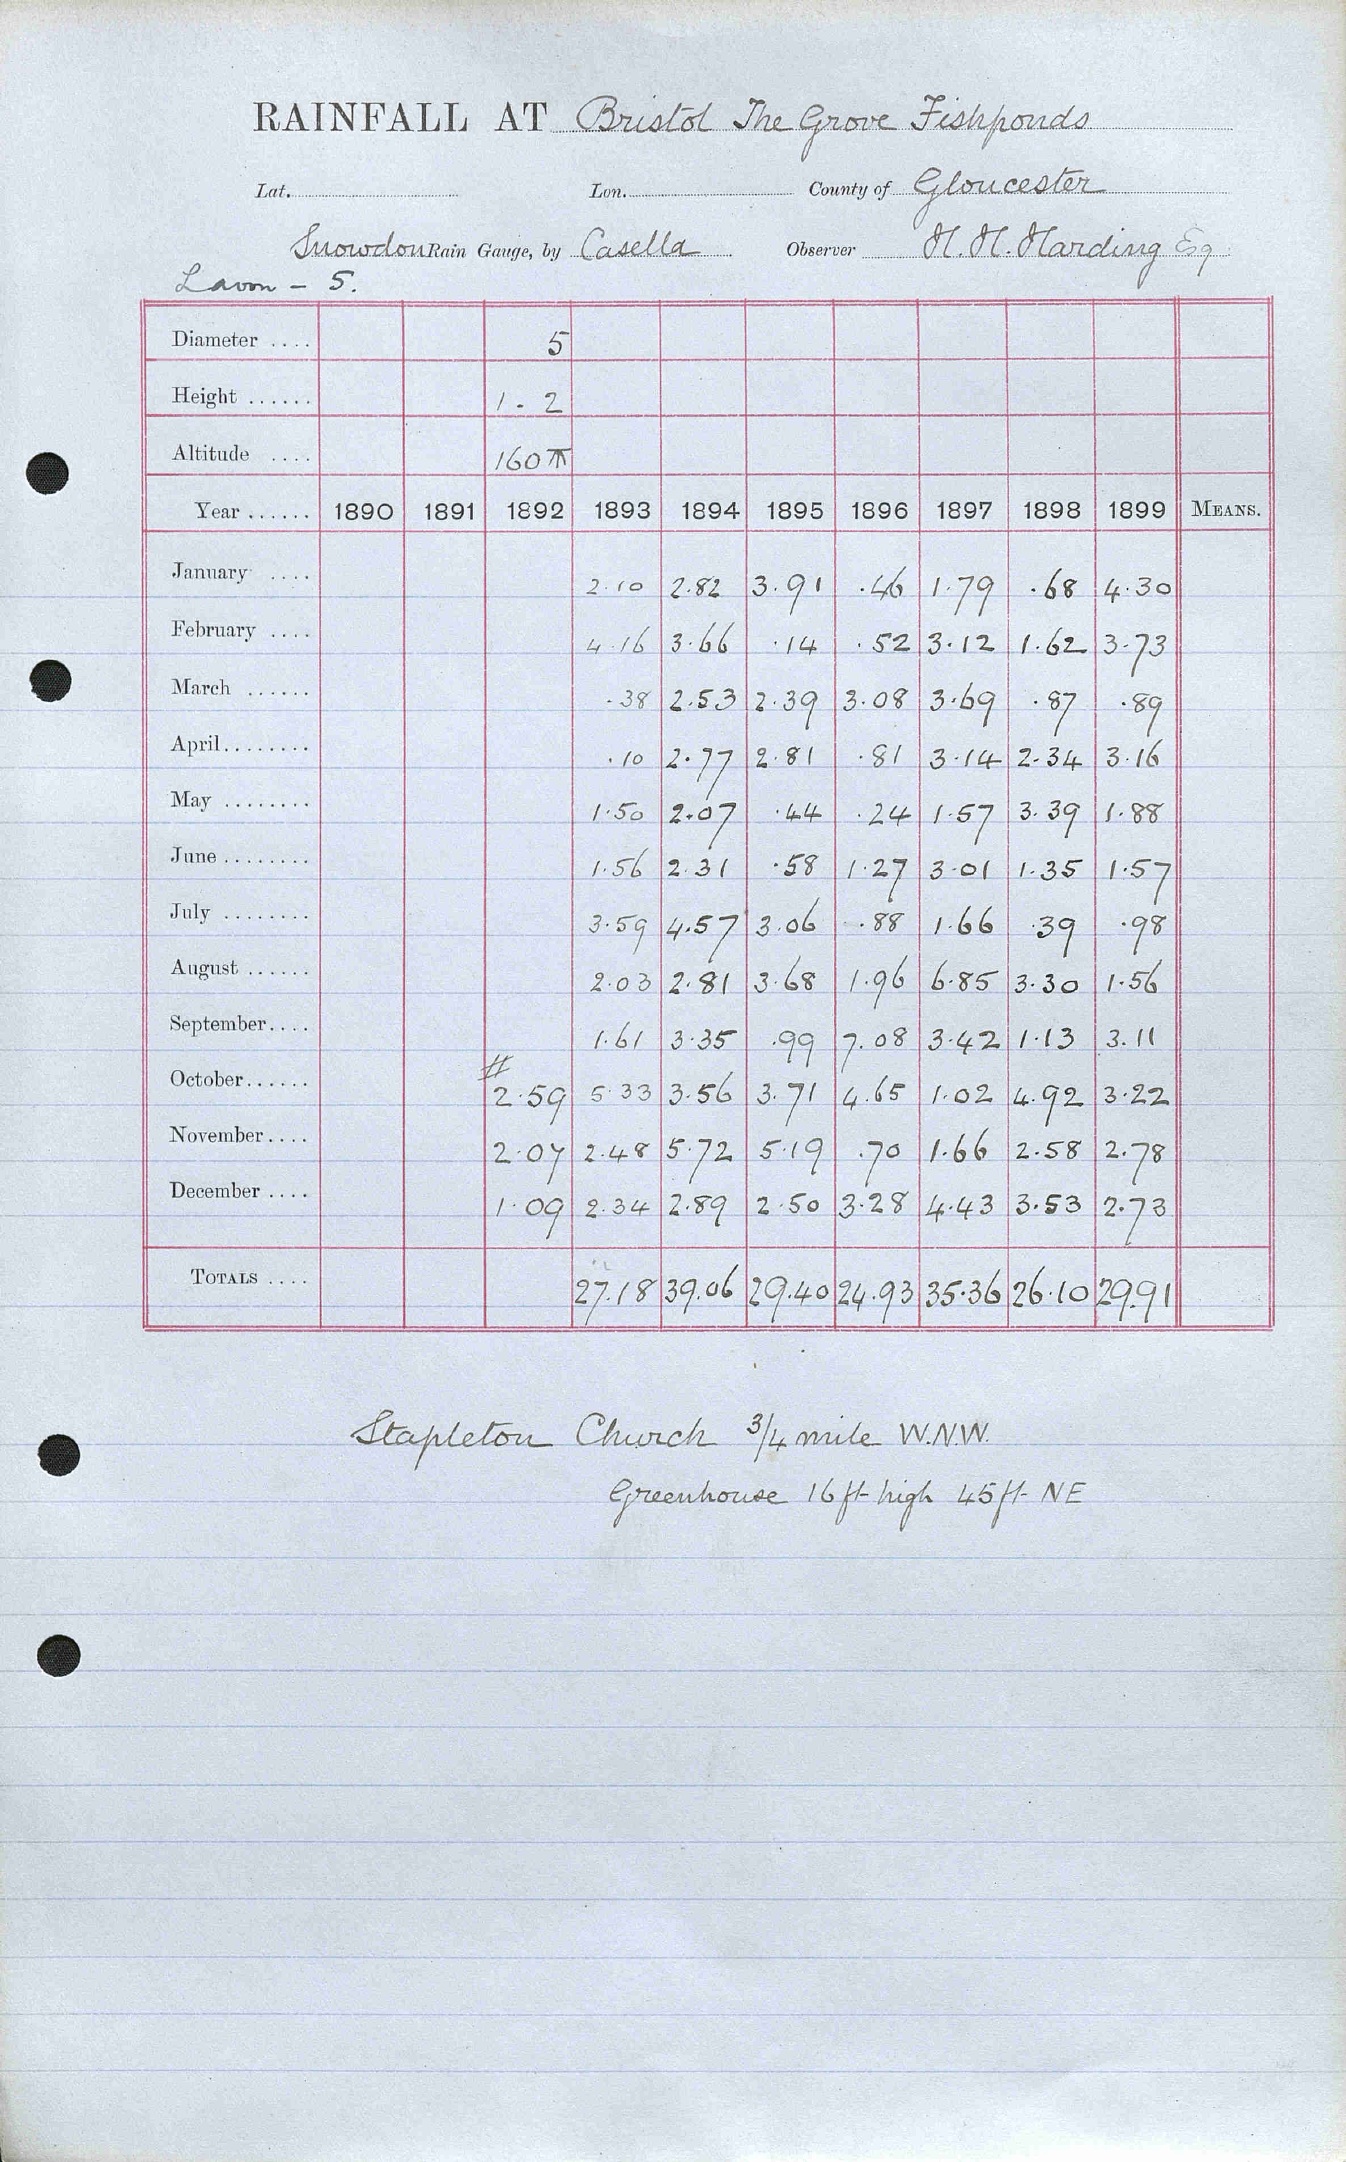 RAINFALL AT Bristol The Grove Fishponds
Lat. Lon. County of Gloucester
Snowdon Rain Gauge, by Casella Observer H. H. Harding Esq
5.
Diameter .... 5
Height ...... 1 - 2
Altitude .... 160
Year ...... 1890 1891 1892 1893 1894 1895 1896 1897 1898 1899 MEANS.
January .... 2.10 2.82 3.91 .46 1.79 .68 4.30
February .... 4.16 3.66 .14 .52 3.12 1.62 3.73
March ...... .38 2.53 2.39 3.08 3.69 .87 .89
April........ .10 2.77 2.81 .81 3.14 2.34 3.16
May ........ 1.50 2.07 .44 .24 1.57 3.39 1.88
June ........ 1.56 2.31 .58 1.27 3.01 1.35 1.57
July ........ 3.59 4.57 3.06 .88 1.66 .39 .98
August ...... 2.03 2.81 3.68 1.96 6.85 3.30 1.56
September.... 1.61 3.35 .99 7.08 3.42 1.13 3.11
#
October...... 2.59 5.33 3.56 3.71 4.65 1.02 4.92 3.22
November.... 2.07 2.48 5.72 5.19 .70 1.66 2.58 2.78
December .... 1.09 2.34 2.89 2.50 3.28 4.43 3.53 2.73
TOTALS .... 27.18 39.06 29.40 24.93 35.36 26.10 29.91
Stapleton Church 3/4 mile W.N.W.
Greenhouse 16 ft high 45 ft NE